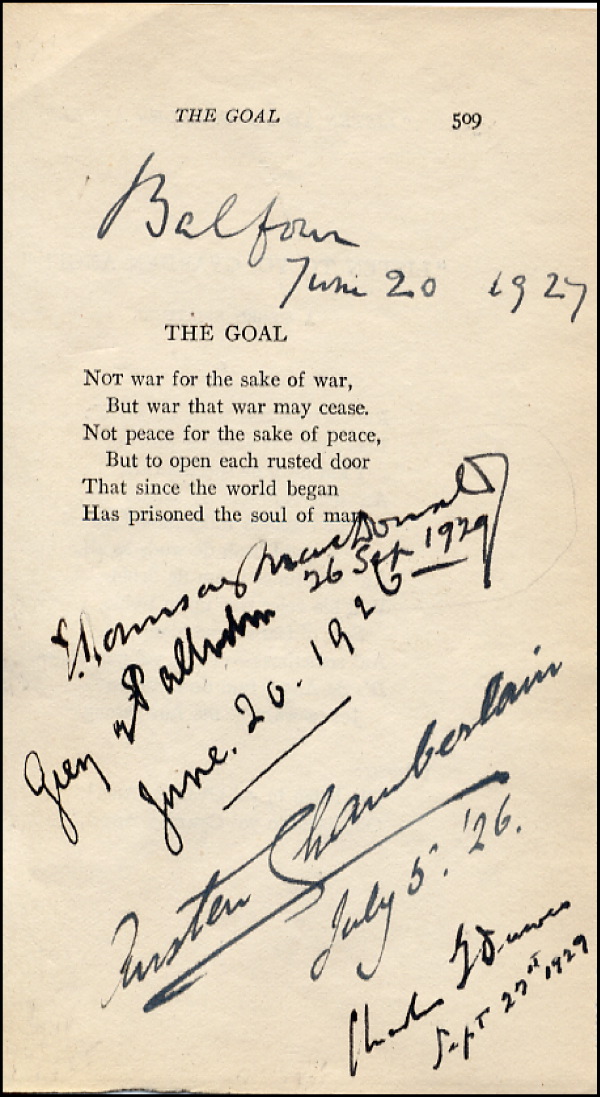 THE GOAL 509
Balfour
June 20 1927
THE GOAL
NOT war for the sake of war,
But war that war may cease.
Not peace for the sake of peace,
But to open each rusted door
That since the world began
Has prisoned the soul of man
J. Ramsay MacDonald
26 Sep 1929
Grey of Fallodon
June. 20. 1926
Austen Chamberlain
July 5. '26.
Charles G Dawes
Sept 27st 1929